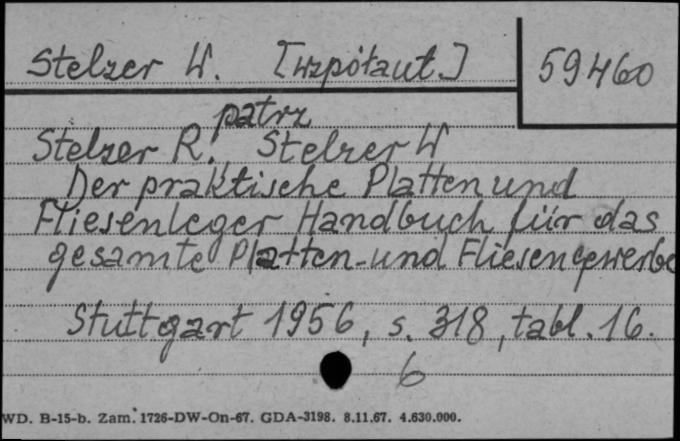 Stelzer W. [współaut.] 59460
patrz
Stelzer R., Stelzer W
Der praktische Platten und
Fliesenleger Handbuch für das
gesamte Platten-und Fliesengewerbe
Stuttgart 1956, s. 318, tabl. 16.
6
WD. B-15-b. Zam. 1726-DW-On-67. GDA-3198. 8.11.67. 4.630.000.